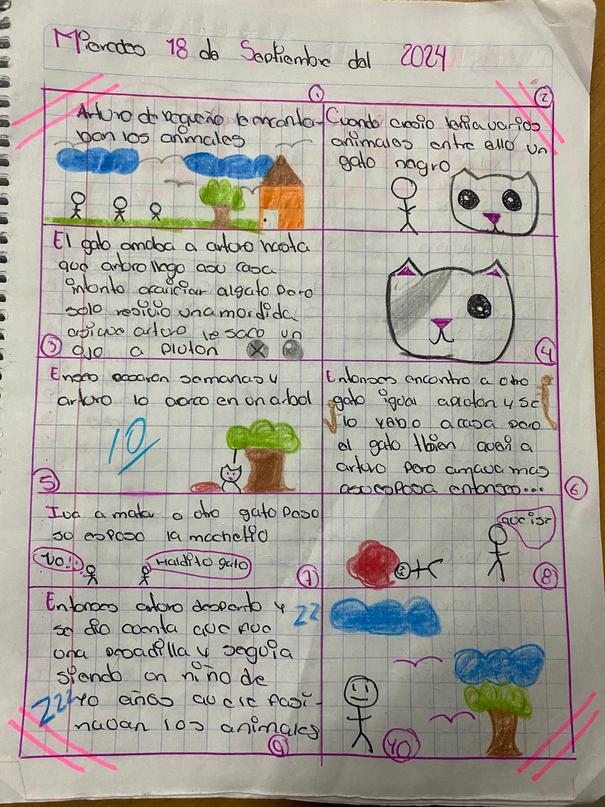 Miercoles 18 de Septiembre del 2024
1
Arturo de pequeño le encanta-
ban los animales
2
Cuando crecio tenia varios
animales entre ello un
gato negro
3
El gato amaba a arturo hasta
que arturo llego asu casa
intento acariciar al gato pero
solo resivio una mordida
arturo le saco un
ojo a pluton
4
5
pasaron semanas y
arturo lo aorco en un arbol
10
6
Entonses encontro a otro
gato igual apluton y se
lo yebo a casa pero
el gato tbien queri a
arturo pero amava mas
asu esposa entonses...
7
Iva a matar a otro gato paso
so esposo la macheteo
No!!
Maldito gato
8
que ise
9
Entonses arturo desperto y
se dio cuenta que fue
una pesadilla y seguia
siendo un niño de
10 años que le fasi-
navan los animales
zz
zzz
10